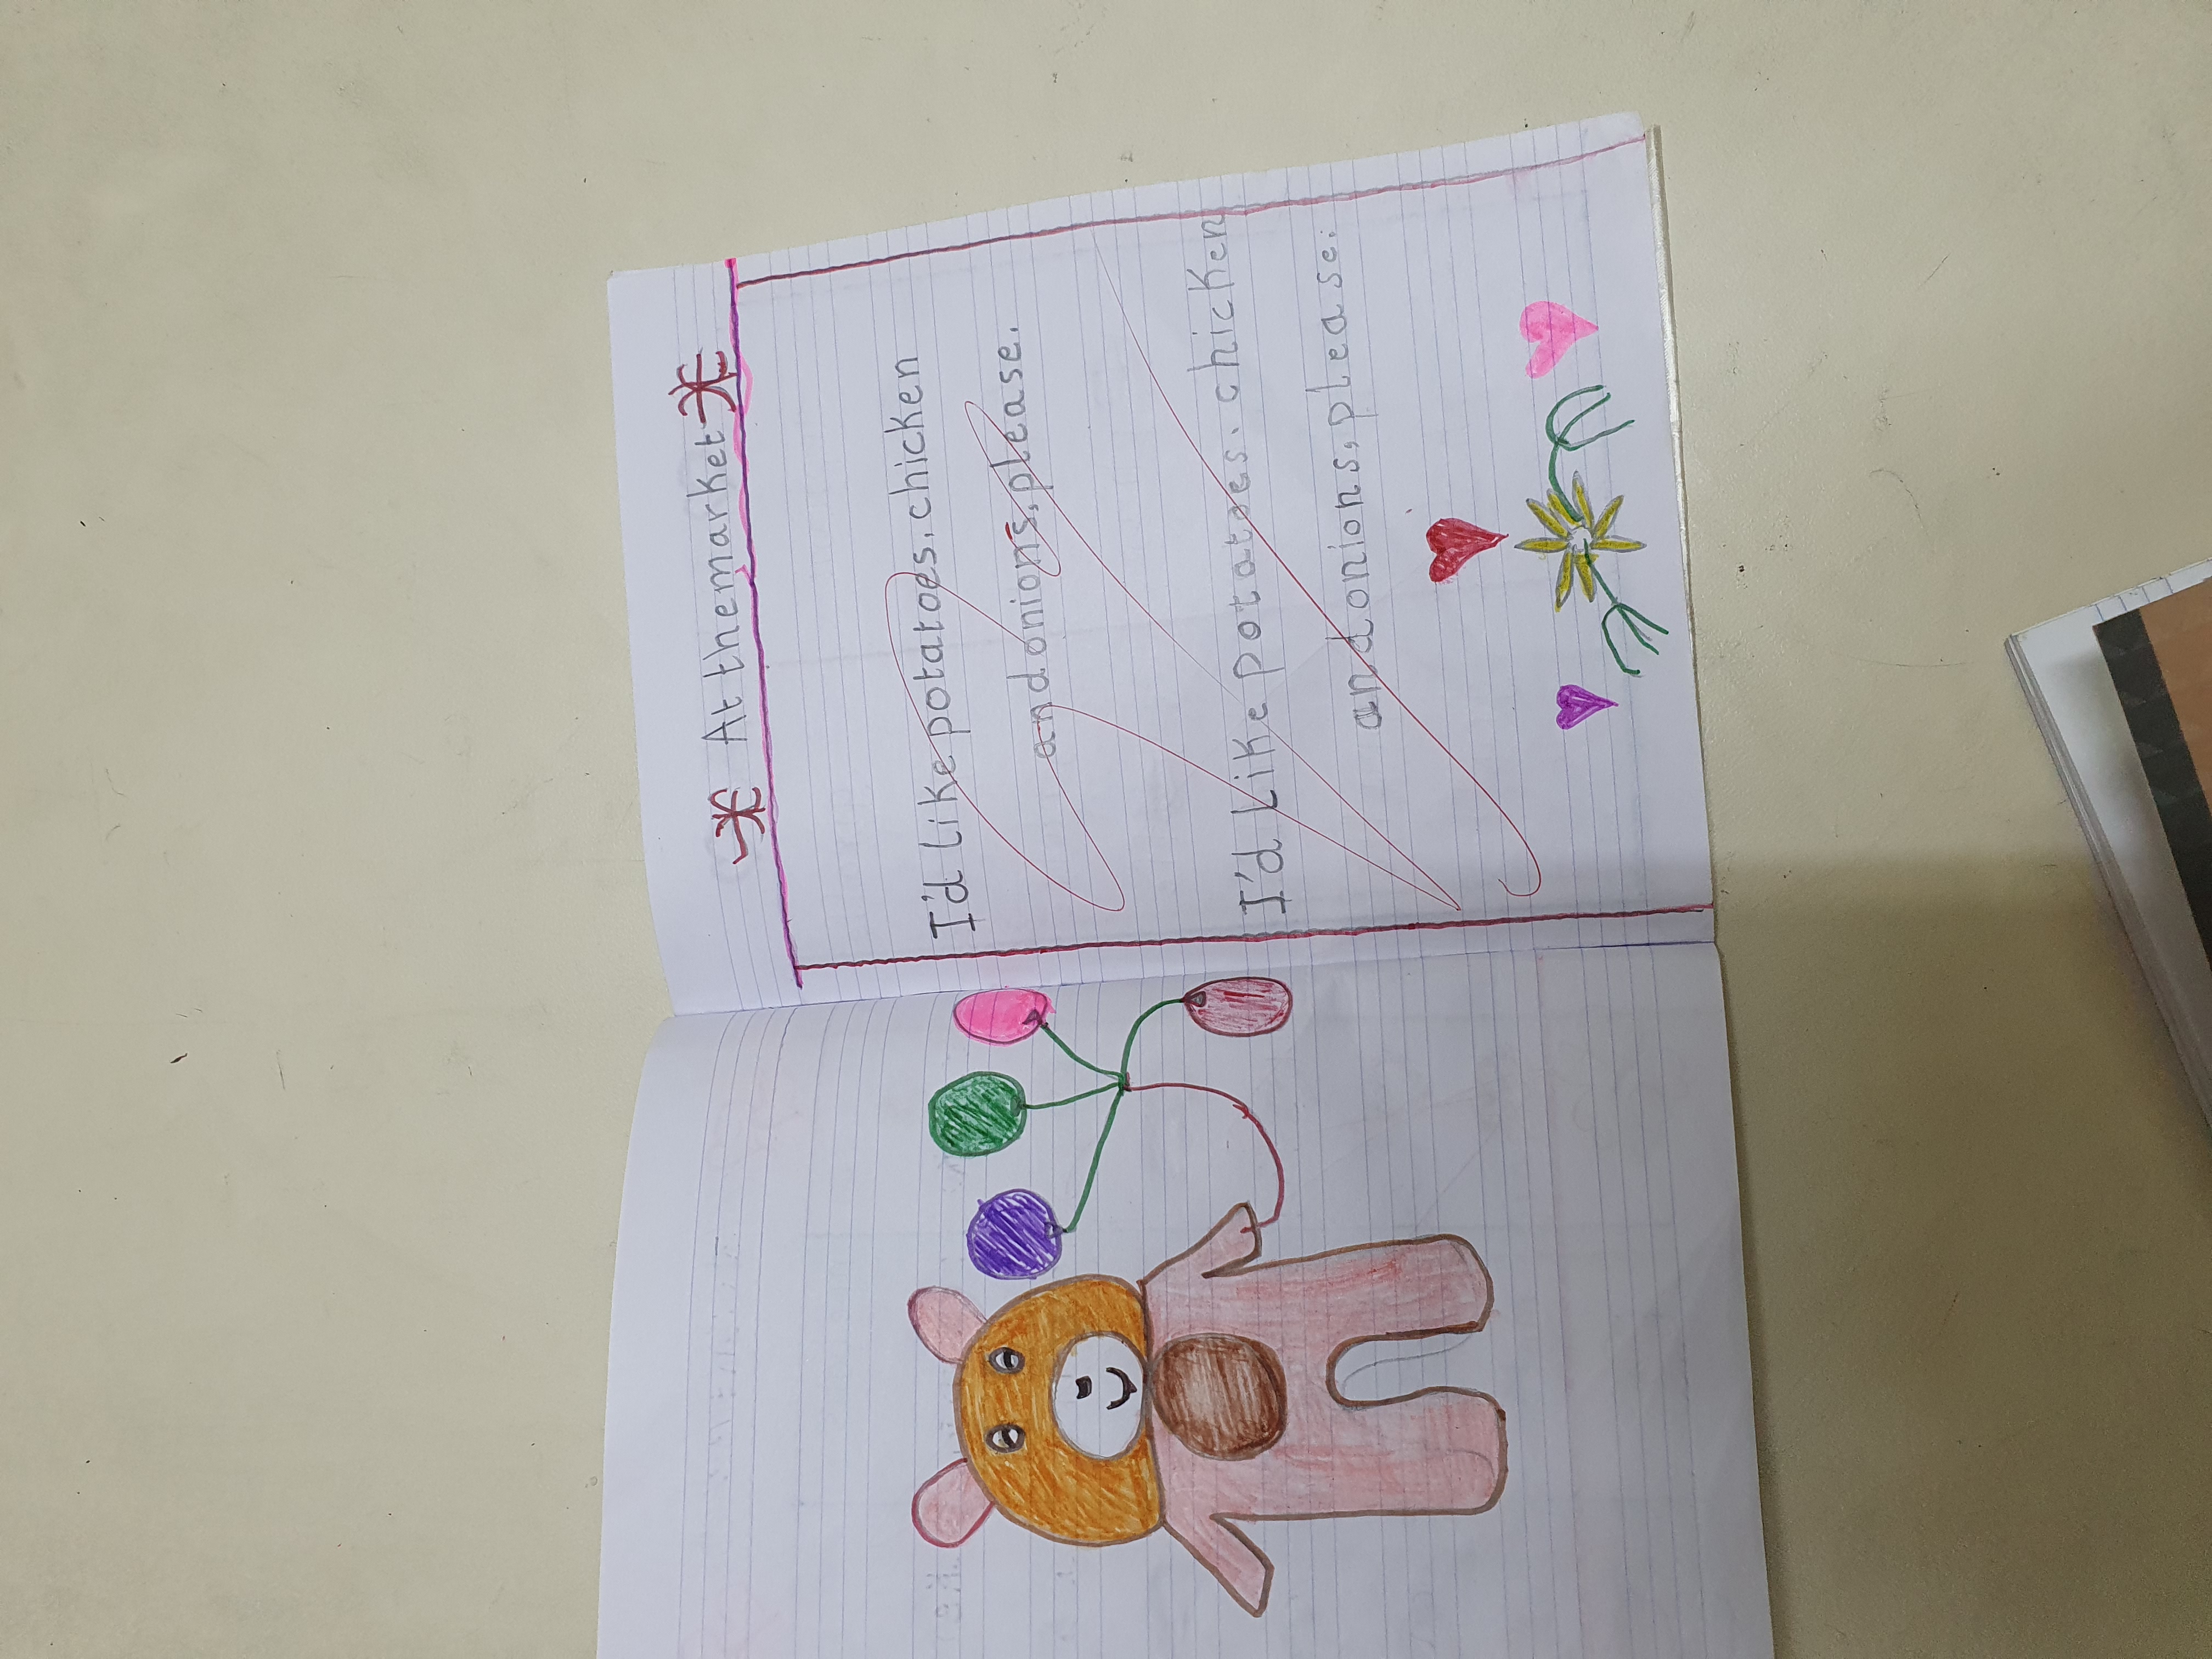 At themarket
I'd like potatoes, chicken
and onions, please.
I'd like potatoes. chicken
and onions, please.